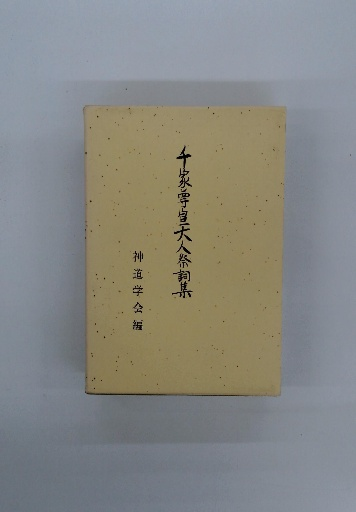 千家尊宣大人祭詞集
神道学会編